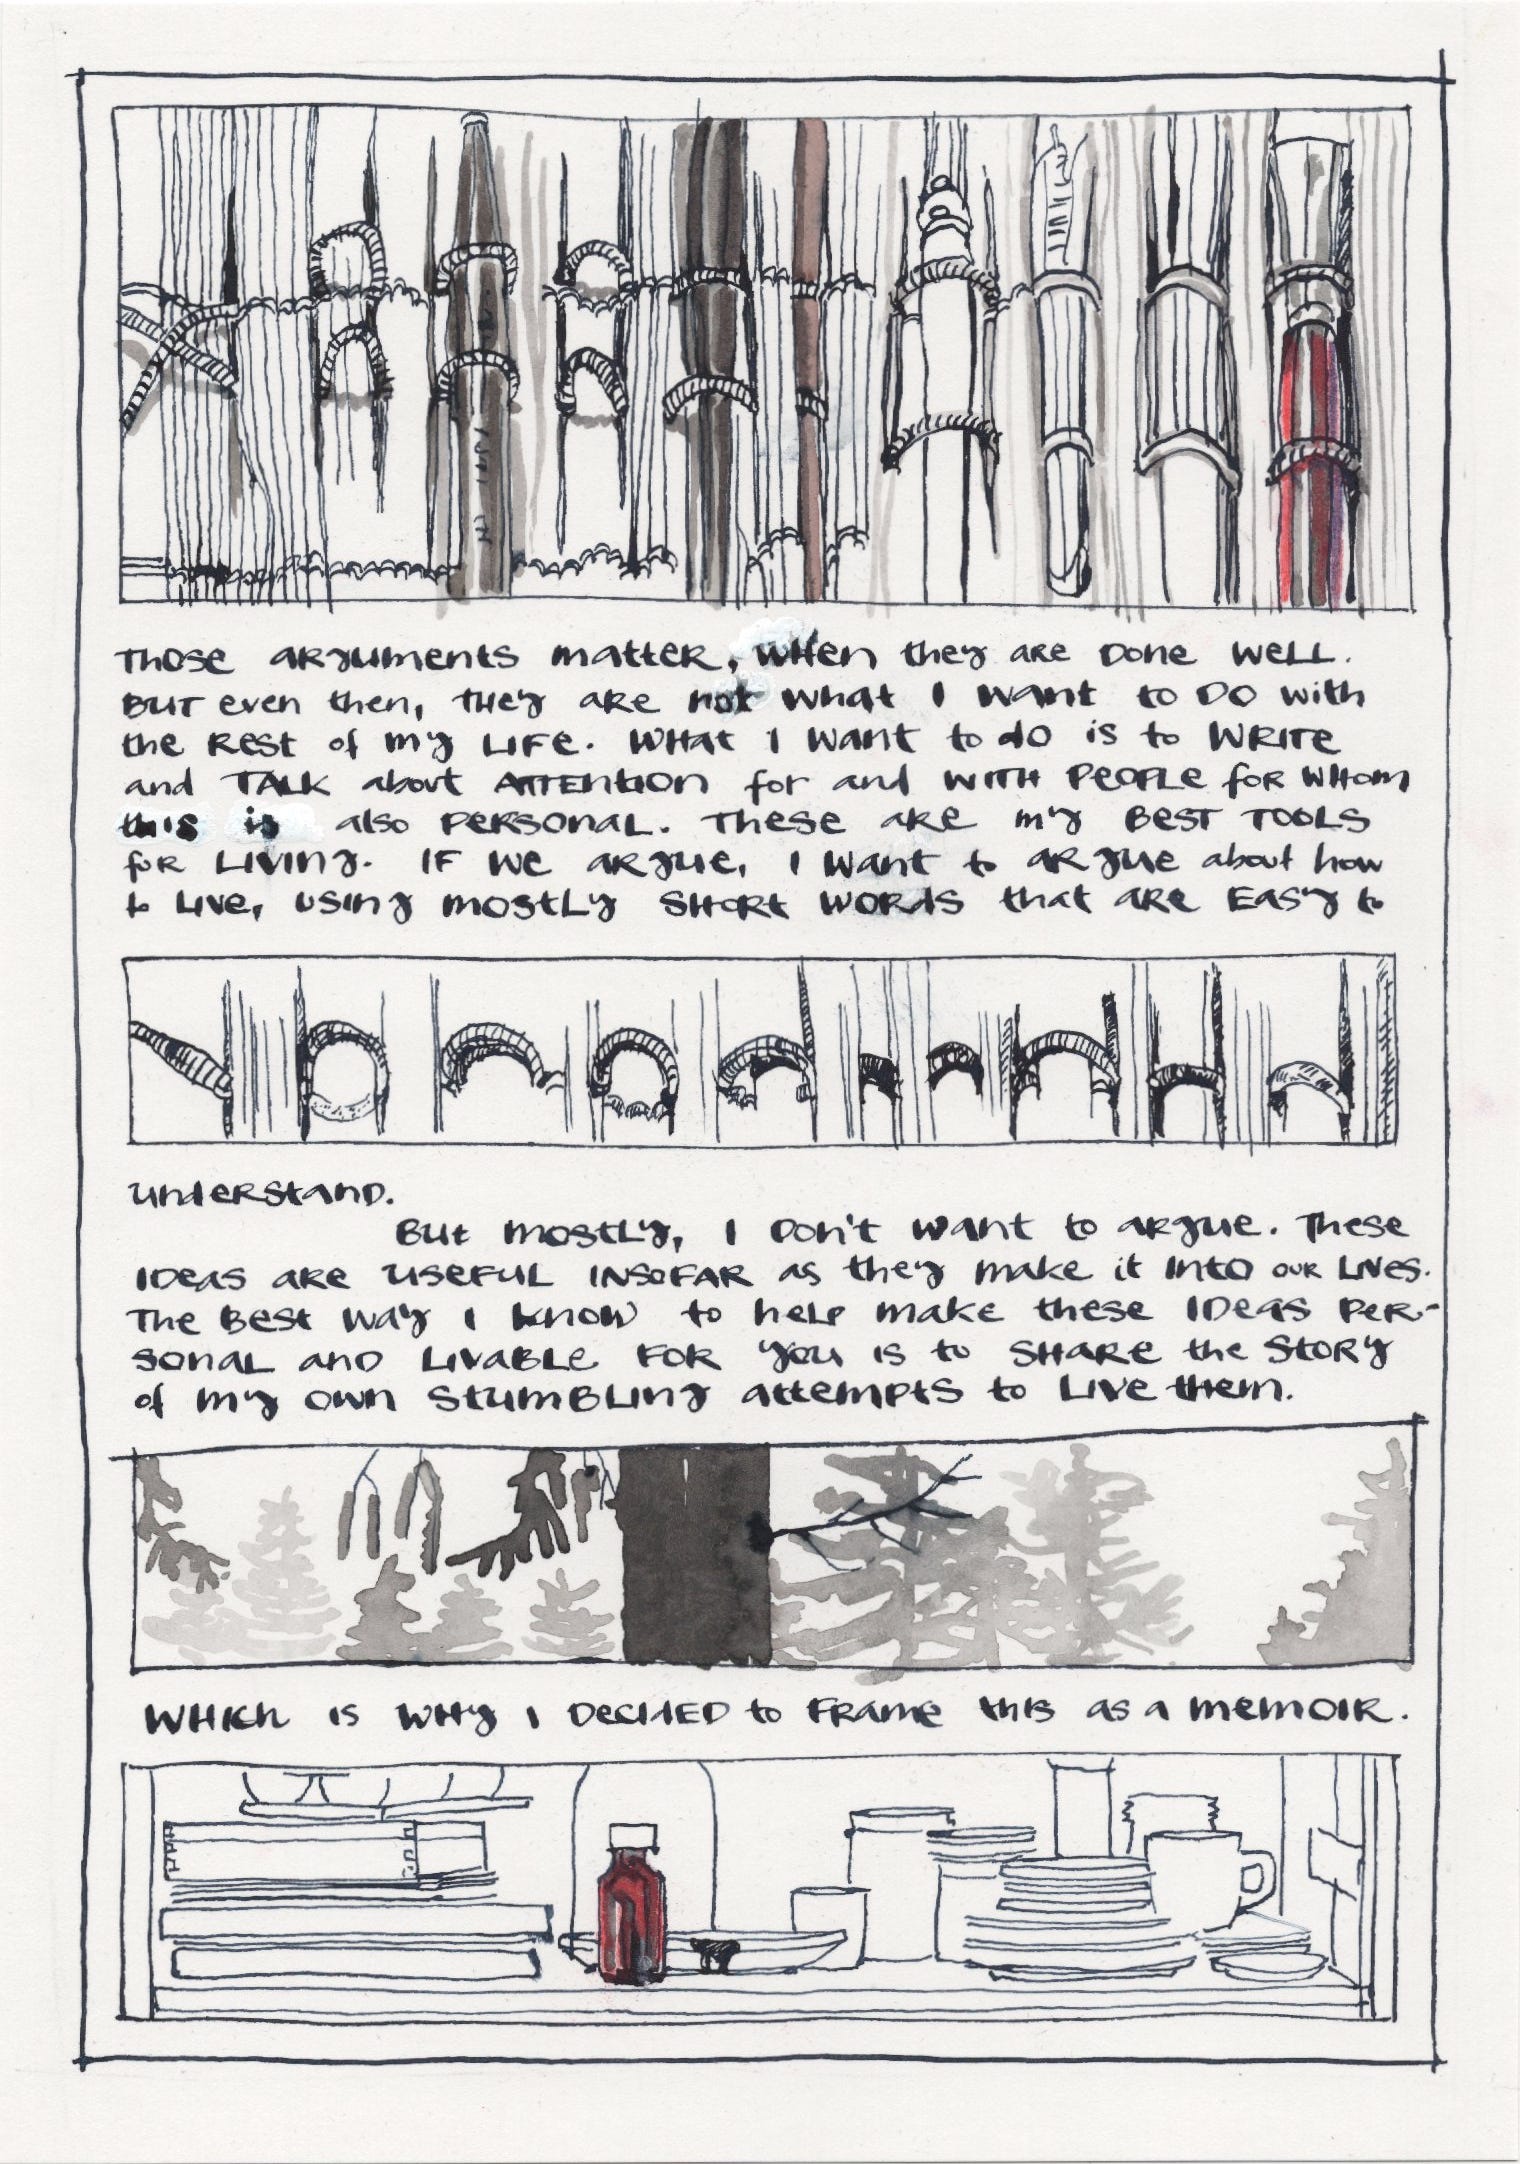 Those arguments matter, when they are done well.
But even then, they are not what I want to do with
the rest of my life. What I want to do is to write
and talk about attention for and with people for whom
this is also personal. These are my best tools
for living. If we argue, I want to argue about how
to live, using mostly short words that are easy to
understand.
But mostly, I don't want to argue. These
ideas are useful insofar as they make it into our lives.
The best way I know to help make these ideas per-
sonal and livable for you is to share the story
of my own stumbling attempts to live them.
Which is why I decided to frame this as a memoir.